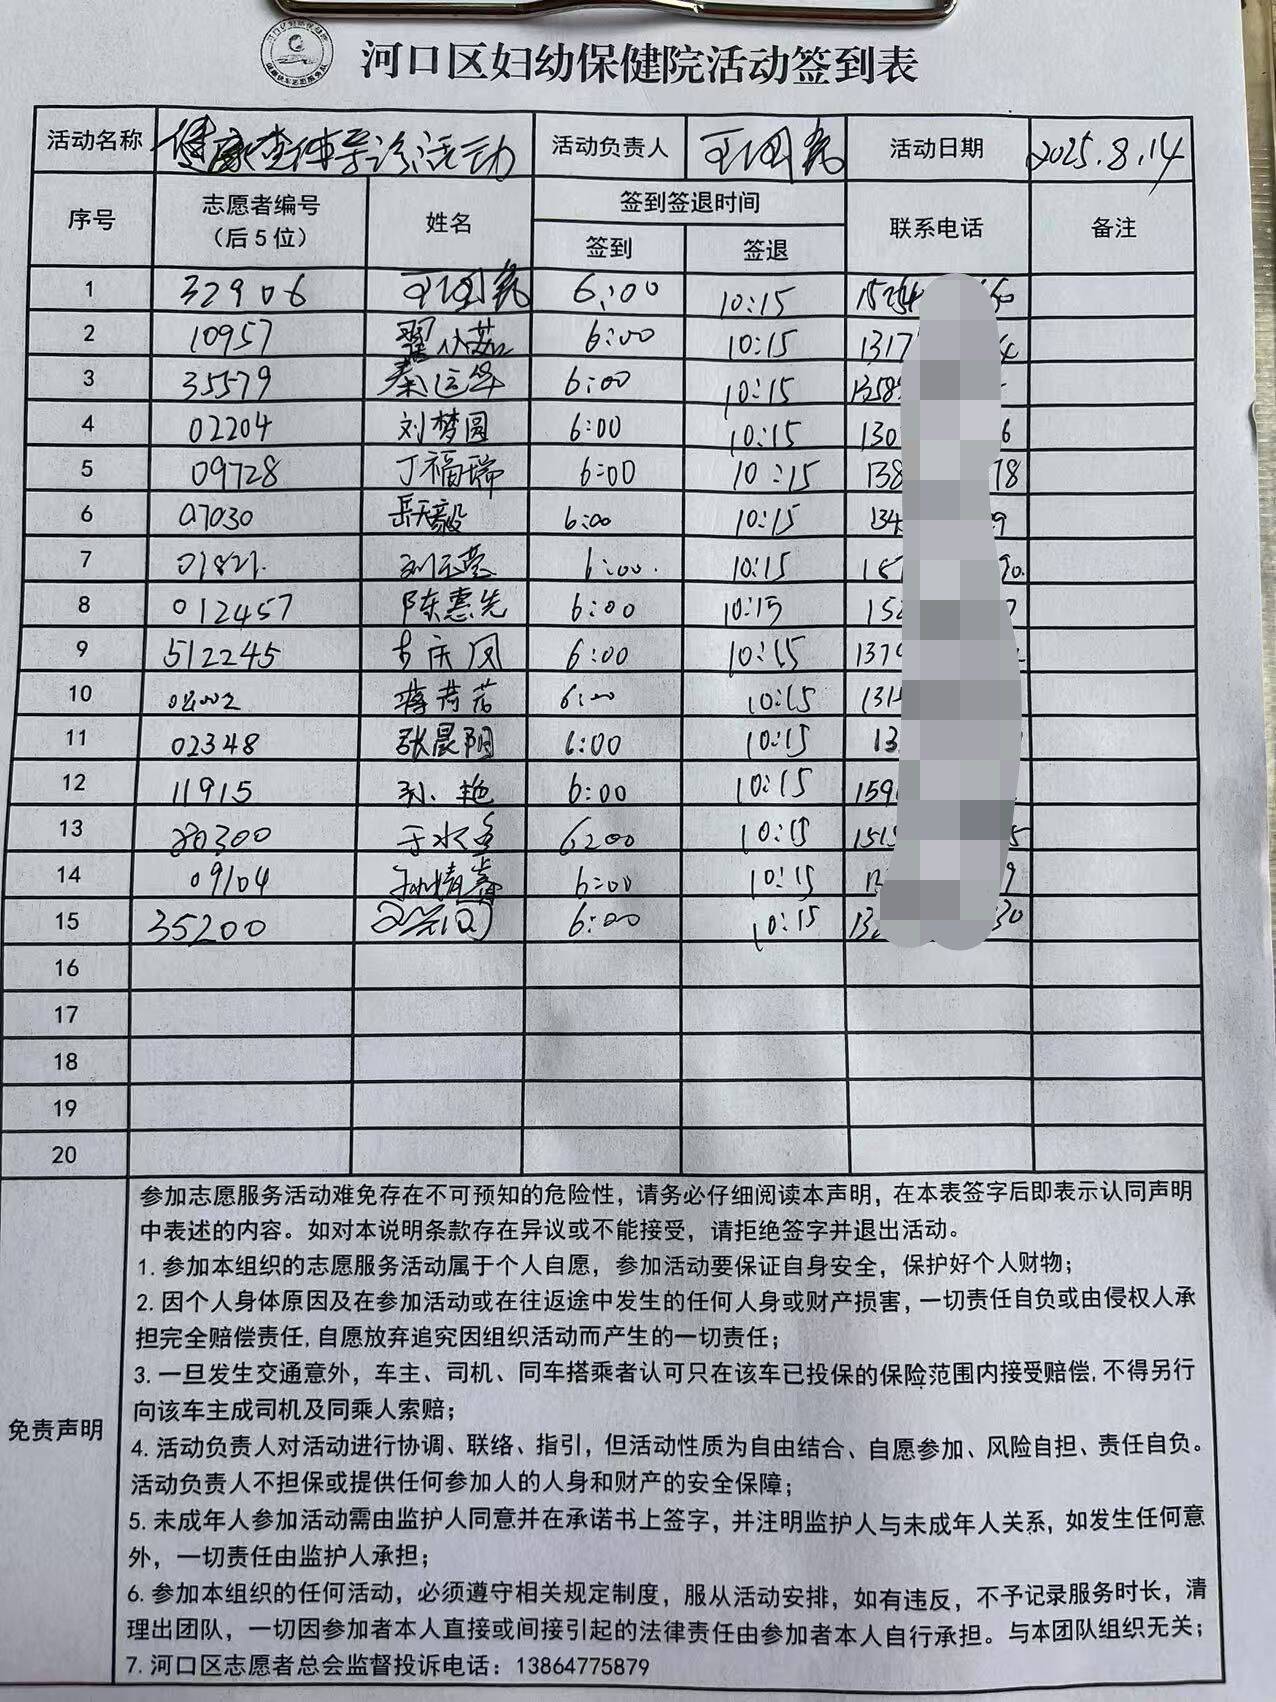 河口区妇幼保健院活动签到表
活动名称 健康查体导诊活动 活动负责人 活动日期 2025.8.14
序号 志愿者编号（后5位） 姓名 签到签退时间 联系电话 备注
签到 签退
1 32906 6:00 10:15
2 10957 翟小茹 6:00 10:15 1317
3 35579 秦运华 6:00 10:15 1358
4 02204 刘梦圆 6:00 10:15 130 6
5 09728 丁福瑞 6:00 10:15 138 78
6 07030 岳天毅 6:00 10:15 134 9
7 01821. 刘元莹 6:00. 10:15 90.
8 012457 陈惠先 6:00 10:15 15
9 512245 庆凤 6:00 10:15 137
10 6:00 10:15 131
11 02348 张晨阳 6:00 10:15 13
12 11915 孙艳 6:00 10:15 159
13 80300 于水 6:00 10:15 151 5
14 09104 孙情 6:00 10:15 9
15 35200 6:00 10:15 13 30
16
17
18
19
20
免责声明
参加志愿服务活动难免存在不可预知的危险性，请务必仔细阅读本声明，在本表签字后即表示认同声明
中表述的内容。如对本说明条款存在异议或不能接受，请拒绝签字并退出活动。
1. 参加本组织的志愿服务活动属于个人自愿，参加活动要保证自身安全，保护好个人财物；
2. 因个人身体原因及在参加活动或在往返途中发生的任何人身或财产损害，一切责任自负或由侵权人承
担完全赔偿责任，自愿放弃追究因组织活动而产生的一切责任；
3. 一旦发生交通意外，车主、司机、同车搭乘者认可只在该车已投保的保险范围内接受赔偿，不得另行
向该车主成司机及同乘人索赔；
4. 活动负责人对活动进行协调、联络、指引，但活动性质为自由结合、自愿参加、风险自担、责任自负。
活动负责人不担保或提供任何参加人的人身和财产的安全保障；
5. 未成年人参加活动需由监护人同意并在承诺书上签字，并注明监护人与未成年人关系，如发生任何意
外，一切责任由监护人承担；
6. 参加本组织的任何活动，必须遵守相关规定制度，服从活动安排，如有违反，不予记录服务时长，清
理出团队，一切因参加者本人直接或间接引起的法律责任由参加者本人自行承担。与本团队组织无关；
7. 河口区志愿者总会监督投诉电话：13864775879